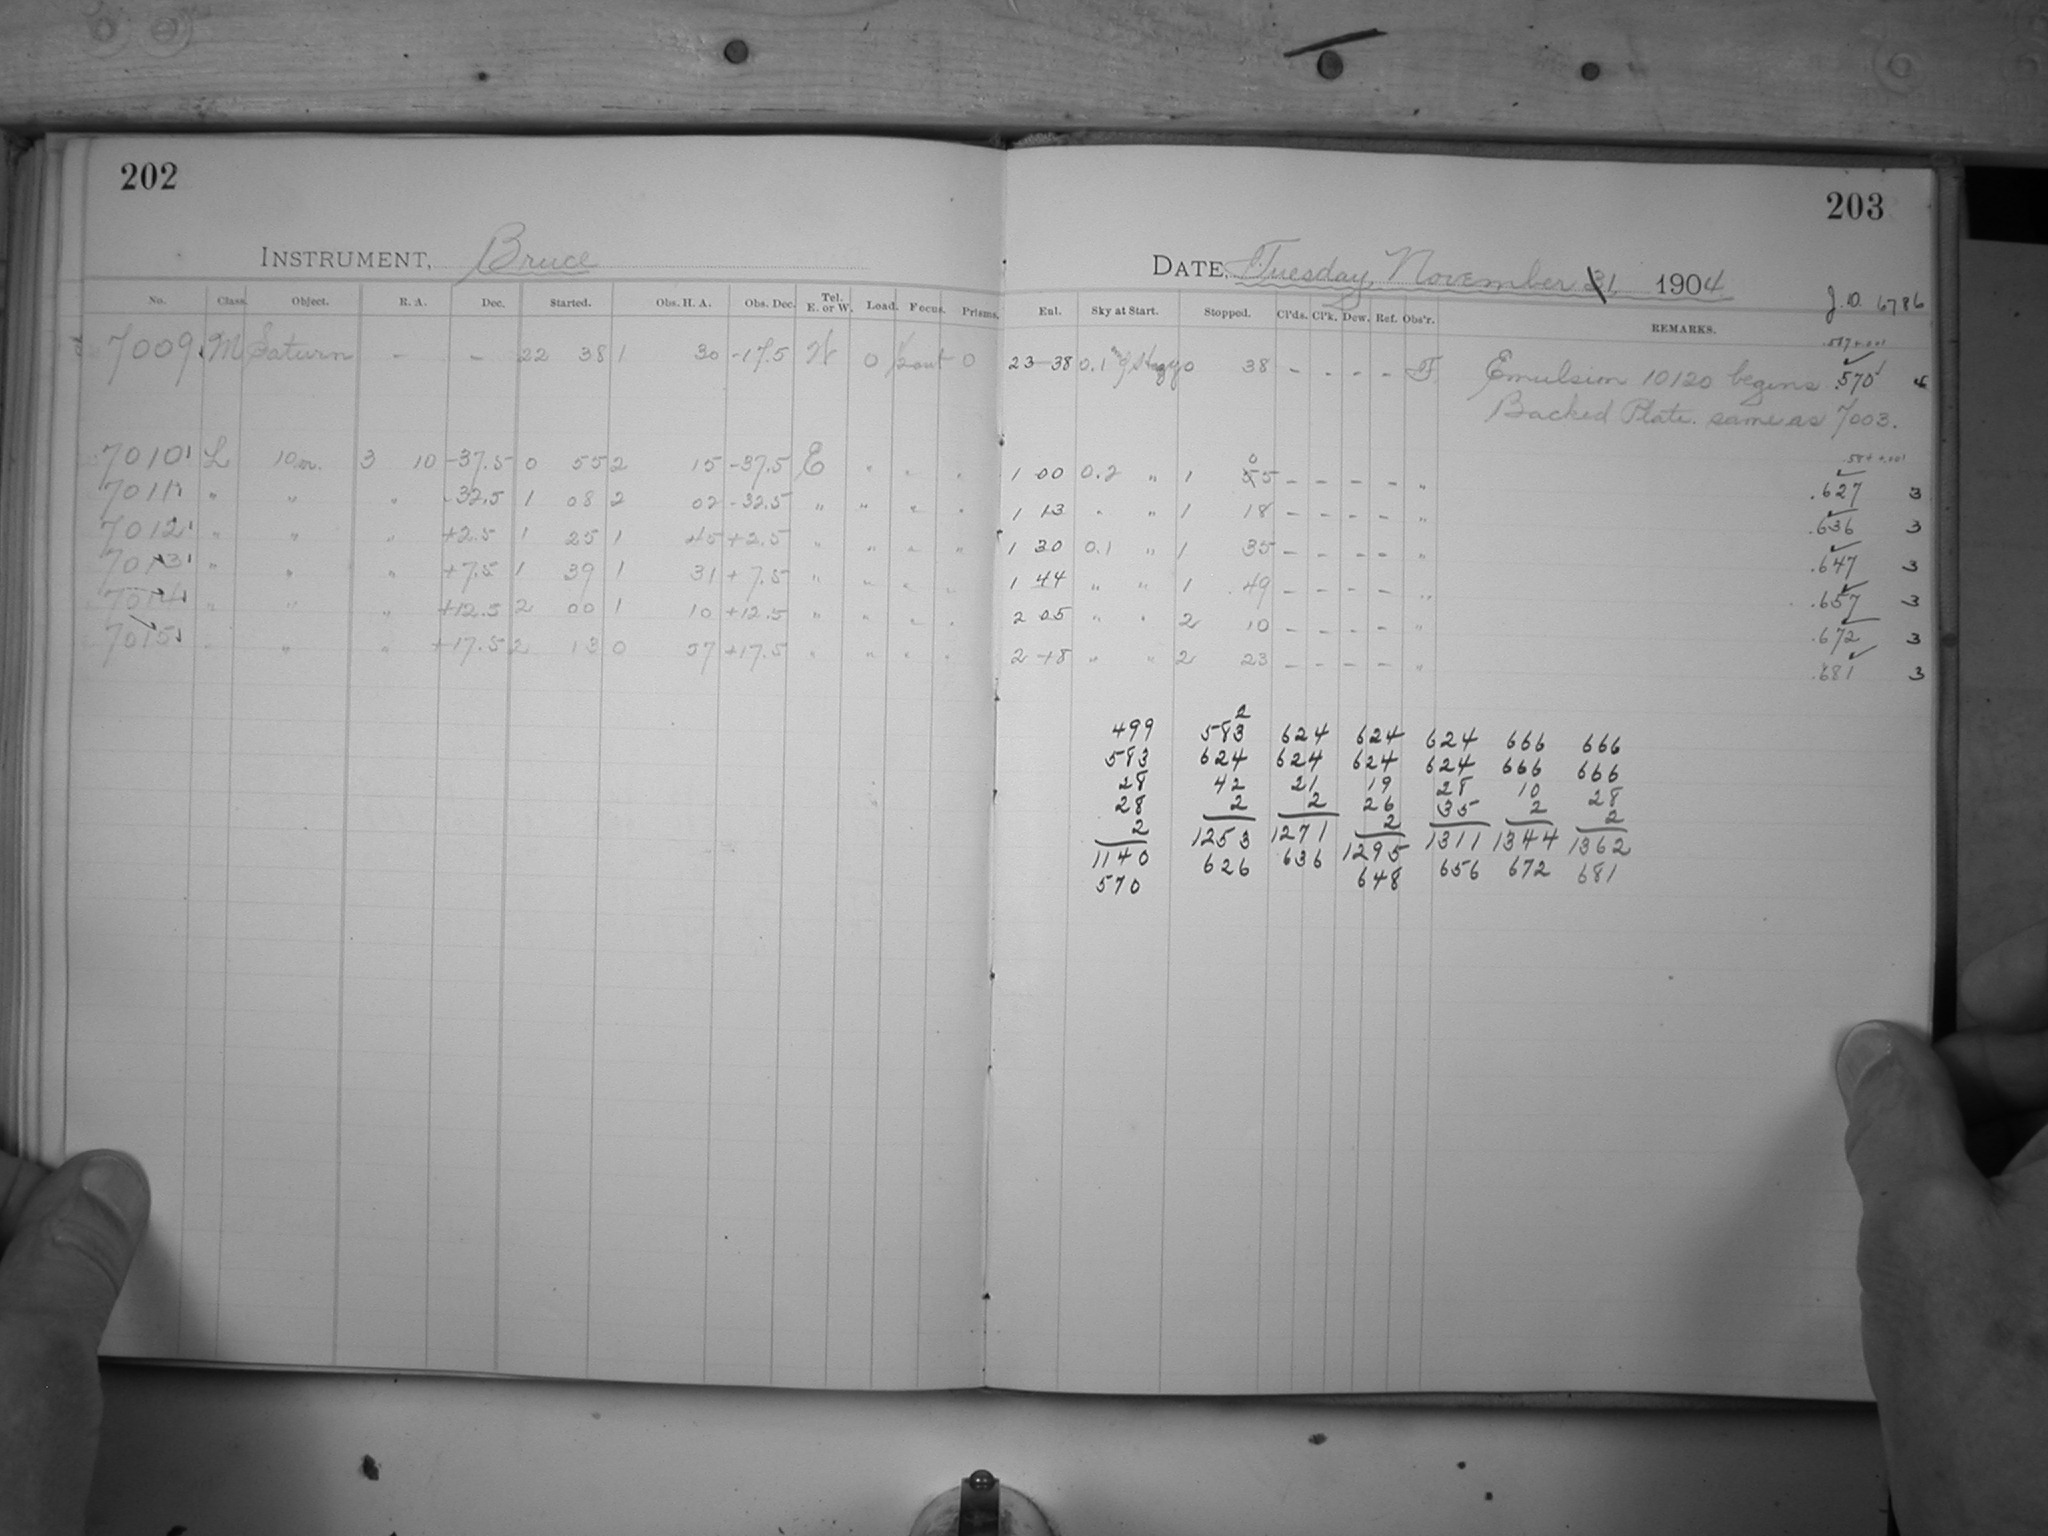 202
203
INSTRUMENT, Bruce
DATE, Tuesday, November 1, 1904
J.D. 6786
No. Class. Object. R. A. Dec. Started. Obs. H. A. Obs. Dec. Tel. E. or W. Load. Focus. Prisms. Enl. Sky at Start. Stopped. Cl'ds. Cl'k. Dew. Ref. Obs'r. REMARKS.
7009 M Saturn - - 22 38 1 30 -17.5 W 0 0 23-38 0.1 0 38 - - - - F Emulsion 10120 begins .570
Backed Plate. same as 7003.
7010 L 10m. 3 10 -37.5 0 55 2 15 -37.5 E " " " 1 00 0.2 " 1 0 - - - - " .627 3
7011 " " " -32.5 1 08 2 02 -32.5 " " " " 1 13 " " 1 18 - - - - " .636 3
7012 " " " +2.5 1 25 1 45 +2.5 " " " " 1 30 0.1 " 1 35 - - - - " .647 3
7013 " " " +7.5 1 39 1 31 +7.5 " " " " 1 44 " " 1 49 - - - - " .657 3
7014 " " " +12.5 2 00 1 10 +12.5 " " " " 2 05 " " 2 10 - - - - " .672 3
7015 " " " +17.5 2 13 0 57 +17.5 " " " " 2 18 " " 2 23 - - - - " .681 3
2
499 583 624 624 624 666 666
583 624 624 624 624 666 666
28 42 21 19 28 10 28
28 2 2 26 35 2 2
2 1253 1271 2 1311 1344 1362
1140 626 636 1295 656 672 681
570 648